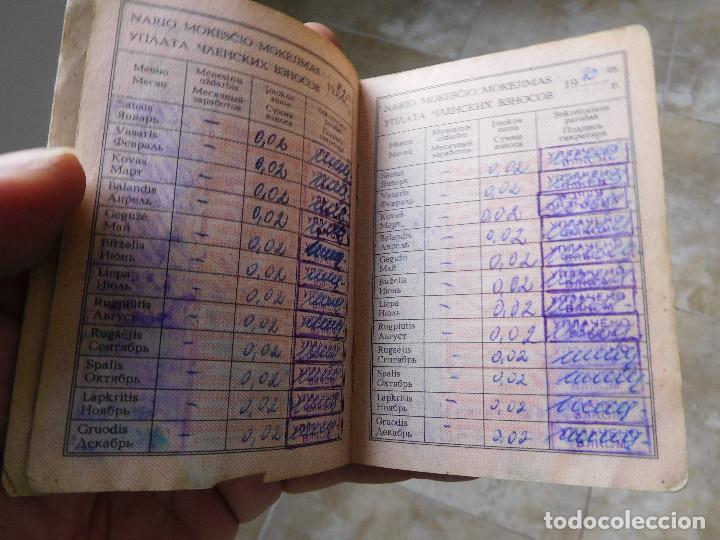 NARIO MOKESČIO MOKĖJIMAS
УПЛАТА ЧЛЕНСКИХ ВЗНОСОВ 1982
Mėnuo Mėnesinis Įmokos Sekretoriaus
Месяц uždarbis suma parašas
Месячный Сумма Подпись
заработок взноса секретаря
Sausis
Январь – 0,02
Vasaris
Февраль – 0,02
Kovas
Март – 0,02
Balandis
Апрель – 0,02
Gegužė
Май – 0,02
Birželis
Июнь – 0,02
Liepa
Июль – 0,02
Rugpiūtis
Август – 0,02
Rugsėjis
Сентябрь – 0,02
Spalis
Октябрь – 0,02
Lapkritis
Ноябрь – 0,02
Gruodis
Декабрь – 0,02
NARIO MOKESČIO MOKĖJIMAS
УПЛАТА ЧЛЕНСКИХ ВЗНОСОВ 19 m. г.
Mėnuo Mėnesinis Įmokos Sekretoriaus
Месяц uždarbis suma parašas
Месячный Сумма Подпись
заработок взноса секретаря
Sausis
Январь – 0,02 УПЛАЧЕНО
Vasaris
Февраль – 0,02 УПЛАЧЕНО
Kovas
Март – 0,02 УПЛАЧЕНО
Balandis
Апрель – 0,02 УПЛАЧЕНО
Gegužė
Май – 0,02 УПЛАЧЕНО
Birželis
Июнь – 0,02 УПЛАЧЕНО
Liepa
Июль – 0,02 УПЛАЧЕНО
Rugpiūtis
Август – 0,02 УПЛАЧЕНО
Rugsėjis
Сентябрь – 0,02
Spalis
Октябрь – 0,02
Lapkritis
Ноябрь – 0,02
Gruodis
Декабрь – 0,02
todocoleccion.net